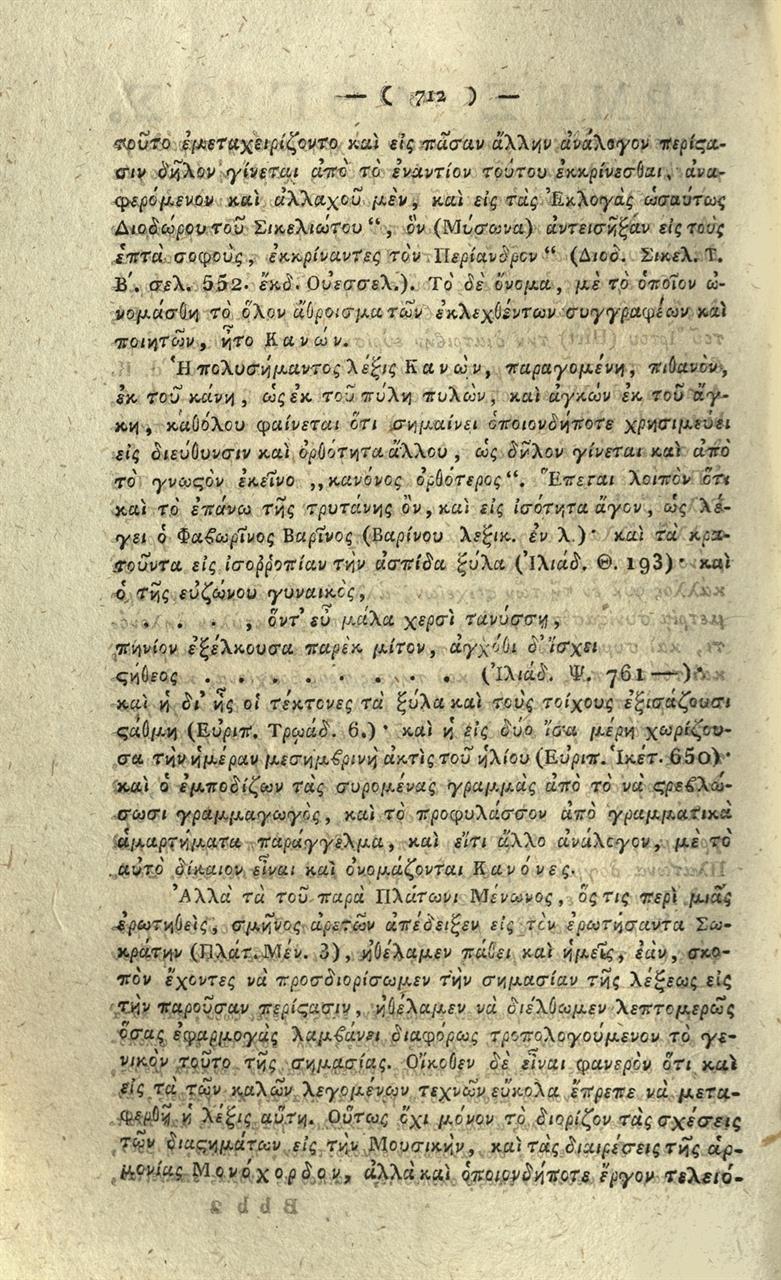 — ( 712 ) —
τοῦτο ἐμεταχειρίζοντο καὶ εἰς πᾶσαν ἄλλην ἀνάλογον περίϛα-
σιν δῆλον γίνεται ἀπὸ τὸ ἐναντίον τούτου ἐκκρίνεσθαι, ἀνα-
φερόμενον καὶ ἀλλαχοῦ μὲν, καὶ εἰς τὰς Ἐκλογὰς ὡσαύτως
Διοδώρου τοῦ Σικελιώτου “, ὃν (Μύσωνα) ἀντεισῆξαν εἰς τους
ἑπτὰ σοφοὺς, ἐκκρίναντες τὸν Περίανδρον “ (Διοδ. Σικελ. Τ.
Β΄. σελ. 552. ἔκδ. Οὐεσσελ.). Τὸ δὲ ὄνομα, μὲ τὸ ὁποῖον ὠ-
νομάσθη τὸ ὅλον ἄθροισμα τῶν ἐκλεχθέντων συγγραφέων καὶ
ποιητῶν, ἦτο Κανών.
Ἡ πολυσήμαντος λέξις Κανὼν, παραγομένη, πιθανὸν,
ἐκ τοῦ κάνη, ὡς ἐκ τοῦ πύλη πυλὼν, καὶ ἀγκών ἐκ τοῦ ἄγ-
κη, καθόλου φαίνεται ὅτι σημαίνει ὁποιονδήποτε χρησιμεύει
εἰς διεύθυνσιν καὶ ὀρθότητα ἄλλου, ὡς δῆλον γίνεται καὶ ἀπὸ
τὸ γνωϛὸν ἐκεῖνο ,,κανόνος ὀρθότερος“. Ἕπεται λοιπὸν ὅτι
καὶ τὸ ἐπάνω τῆς τρυτάνης ὂν, καὶ εἰς ἰσότητα ἄγον, ὡς λέ-
γει ὁ Φαβωρῖνος Βαρῖνος (Βαρίνου λεξικ. ἐν λ.)· καὶ τὰ κρα-
τοῦντα εἰς ἰσοῤῥοπίαν τὴν ἀσπίδα ξύλα (Ἰλιάδ. Θ. 193)· καὶ
ὁ τῆς εὐζώνου γυναικὸς,
. . . . , ὅντ' εὖ μάλα χερσὶ τανύσσῃ,
πηνίον ἐξέλκουσα παρὲκ μίτον, ἀγχόθι δ' ἴσχει
ϛήθεος . . . . . . . . (Ἰλιάδ. Ψ. 761—)·
καὶ ἡ δι' ἧς οἱ τέκτονες τὰ ξύλα καὶ τοὺς τοίχους ἐξισάζουσι
ϛάθμη (Εὐριπ. Τρῳάδ. 6.)· καὶ ἡ εἰς δύο ἴσα μέρη χωρίζου-
σα τὴν ἡμέραν μεσημβρινὴ ἀκτὶς τοῦ ἡλίου (Εὐριπ. Ἱκέτ. 650)·
καὶ ὁ ἐμποδίζων τὰς συρομένας γραμμὰς ἀπὸ τὸ νὰ ϛρεβλώ-
σωσι γραμμαγωγὸς, καὶ τὸ προφυλάσσον ἀπὸ γραμματικὰ
ἁμαρτήματα παράγγελμα, καὶ εἴτι ἄλλο ἀνάλογον, μὲ τὸ
αὐτὸ δίκαιον εἶναι καὶ ὀνομάζονται Κανόνες.
Ἀλλὰ τὰ τοῦ παρὰ Πλάτωνι Μένωνος, ὅς τις περὶ μιᾶς
ἐρωτηθεὶς, σμῆνος ἀρετῶν ἀπέδειξεν εἰς τὸν ἐρωτήσαντα Σω-
κράτην (Πλάτ. Μέν. 3), ἠθέλαμεν πάθει καὶ ἡμεῖς, ἐὰν, σκο-
πὸν ἔχοντες νὰ προσδιορίσωμεν τὴν σημασίαν τῆς λέξεως εἰς
τὴν παροῦσαν περίϛασιν, ἠθέλαμεν νὰ διέλθωμεν λεπτομερῶς
ὅσας ἐφαρμογὰς λαμβάνει διαφόρως τροπολογούμενον τὸ γε-
νικὸν τοῦτο τῆς σημασίας. Οἴκοθεν δὲ εἶναι φανερὸν ὅτι καὶ
εἰς τὰ τῶν καλῶν λεγομένων τεχνῶν εὔκολα ἔπρεπε νὰ μετα-
φερθῇ ἡ λέξις αὕτη. Οὕτως ὄχι μόνον τὸ διορίζον τὰς σχέσεις
τῶν διαϛημάτων εἰς τὴν Μουσικὴν, καὶ τὰς διαιρέσεις τῆς ἁρ-
μονίας Μονόχορδον, ἀλλὰ καὶ ὁποιονδήποτε ἔργον τελειό-